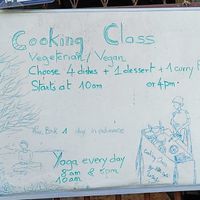 Cooking Class
Vegetarian / Vegan
Choose 4 dishes + 1 dessert + 1 curry
Starts at 10am or 4pm.
1 day in advance
Yoga every day
8am & 5pm
10am